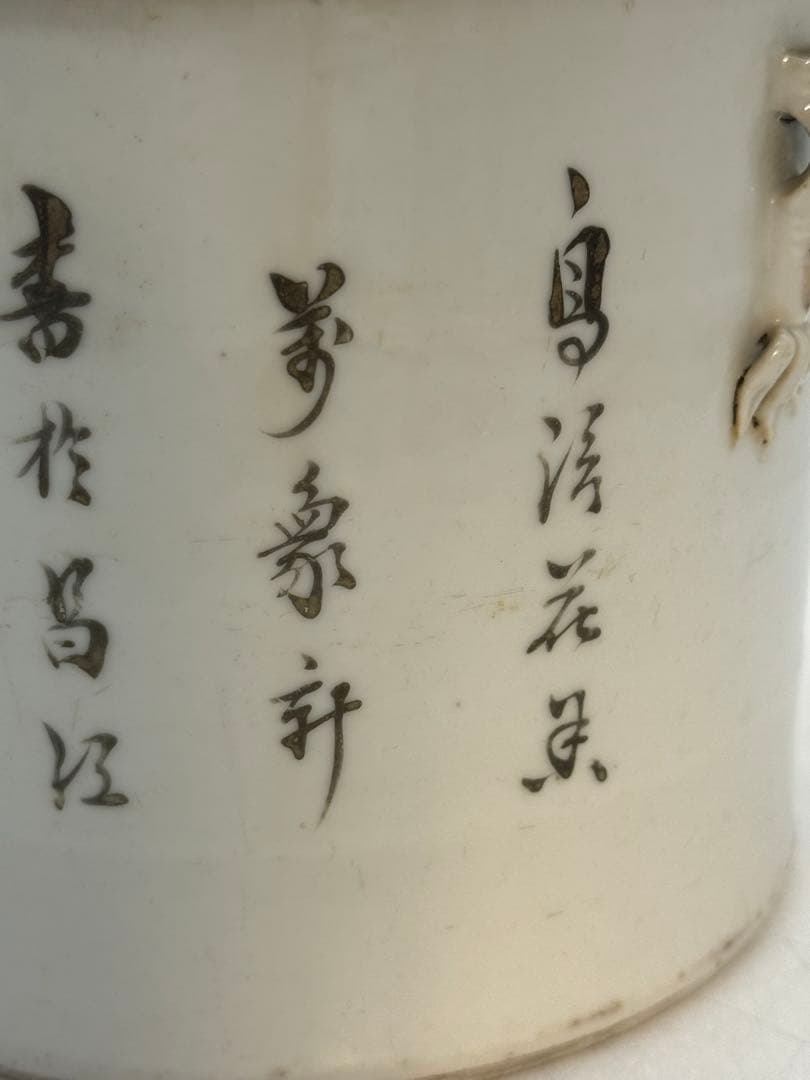 鳥語花香
萬象新
書於昌江